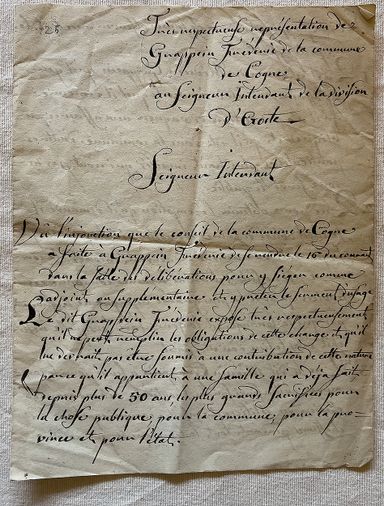 25
Très respectueuse représentation de
Guappein Fnérénie de la commune
de Cogne
au Seigneur Intendant de la division
D'Aoste
Seigneur Intendant
Vù l'injonction que le conseil de la commune de Cogne
a faite à Guappein de se rendre le 16 du courant
dans la salle des délibérations pour y siéger comme
adjoint ou supplementaire et y prêter le serment d'usage
Le dit Guappein expose tres respectueusement
qu'il ne peut remplir les obligations de cette charge et qu'il
ne devrait pas être soumis a une contribution de cette nature
parce qu'il appartient à une famille qui a déja fait
depuis plus de 50 ans les plus grands sacrifices pour
la chose publique pour la commune, pour la pro-
vince et pour l'état.